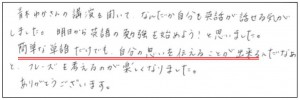 青木ゆかさんの講演を聞いて なんだか自分も英語が話せる気が
しました。明日から英語の勉強を始めよう！と思いました。
簡単な単語だけでも、自分の思いを伝えることが出来るんだなぁ
と、フレーズを考えるのが楽しくなりました。
ありがとうございます。